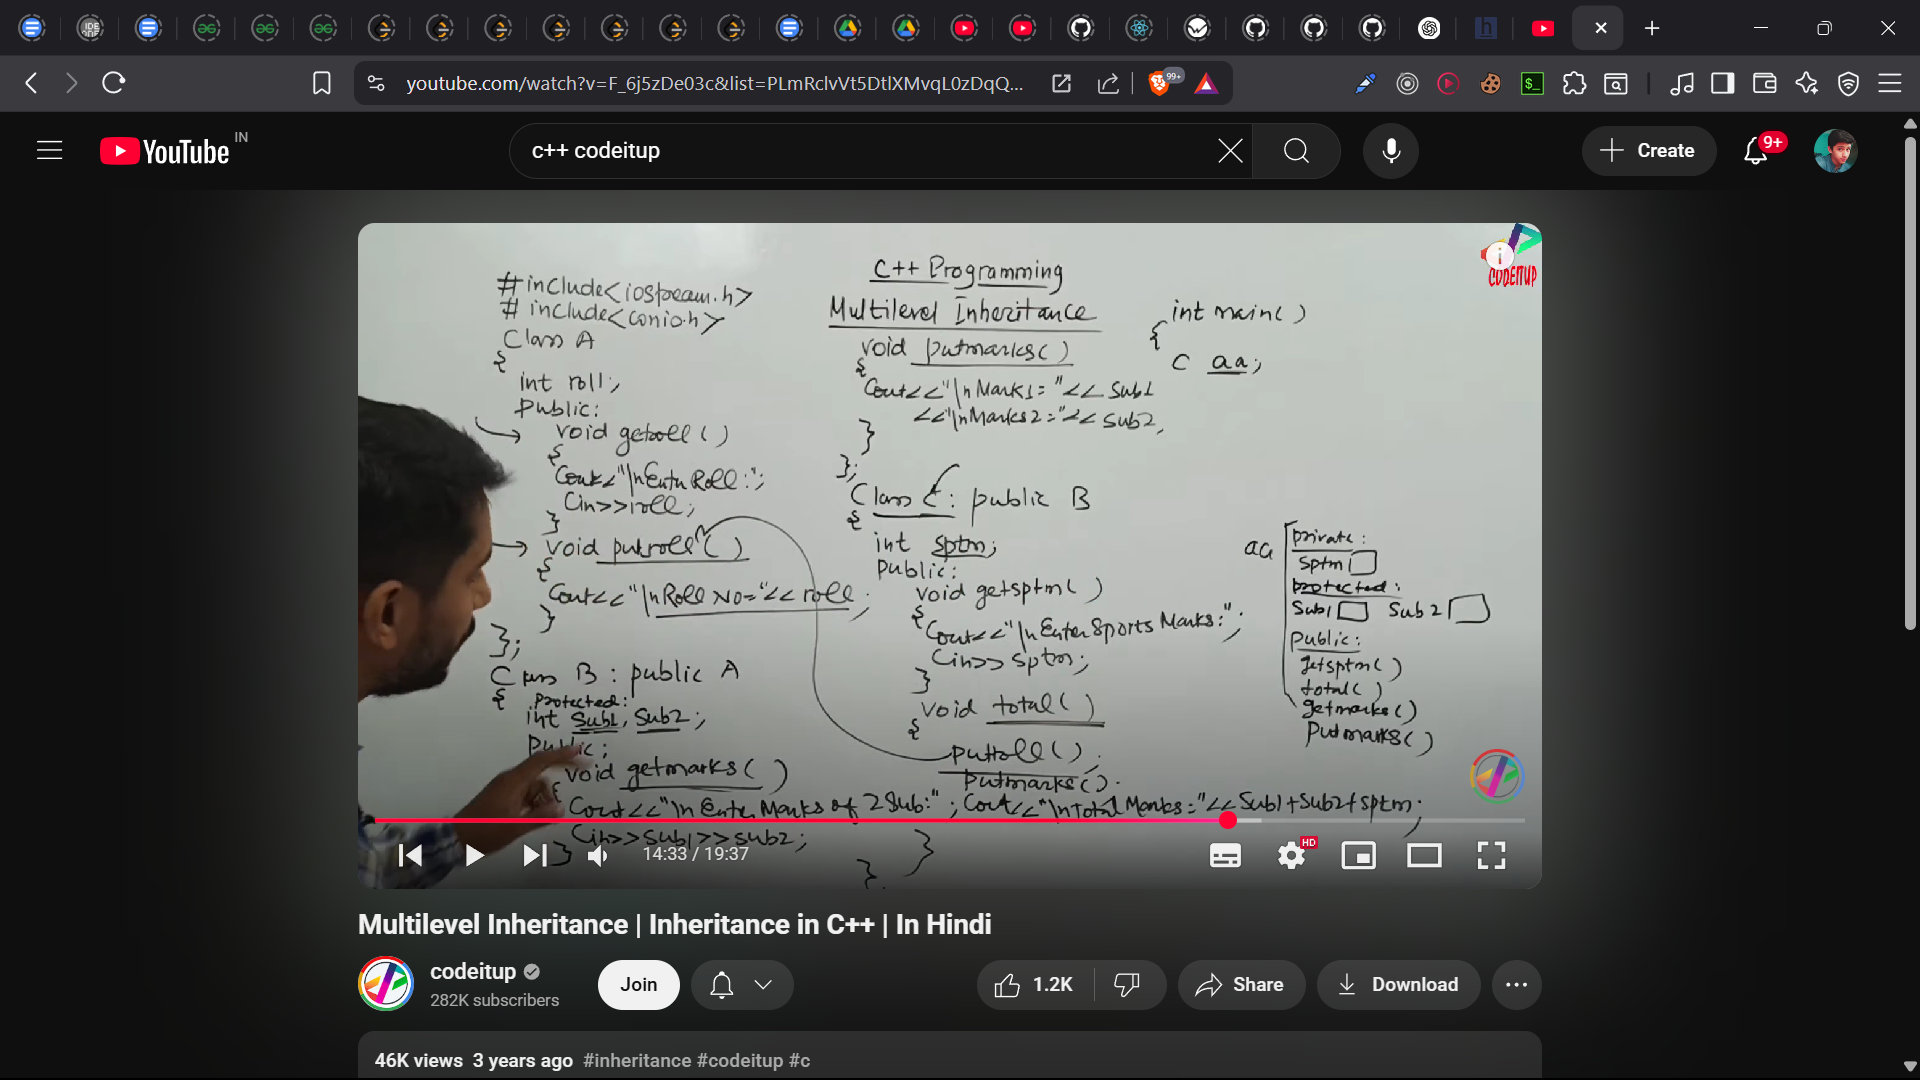 youtube.com/watch?v=F_6j5zDe03c&list=PLmRclvVt5DtlXMvqL0zDqQ...
99+
YouTube IN
c++ codeitup
Create
9+
CODEITUP
C++ Programming
Multilevel Inheritance
#include<iostream.h>
#include<conio.h>
Class A
{
int roll;
Public:
void getroll()
{
Cout<<"\nEnter Roll:";
Cin>>roll;
}
void putroll()
{
Cout<<"\nRoll No="<<roll;
}
};
Class B : public A
{
Protected:
int Sub1, Sub2;
Public:
void getmarks()
{
Cout<<"\nEnter Marks of 2 Sub:";
Cin>>Sub1>>Sub2;
}
void putmarks()
{
Cout<<"\nMarks1="<<Sub1
<<"\nMarks2="<<Sub2;
}
};
Class C : public B
{
int sptm;
Public:
void getsptm()
{
Cout<<"\nEnter Sports Marks:";
Cin>>sptm;
}
void total()
{
putroll();
Putmarks();
Cout<<"\nTotal Marks="<<Sub1+Sub2+sptm;
}
};
int main()
{
C aa;
aa
private:
Sptm
protected:
Sub1 Sub2
Public:
getsptm()
total()
getmarks()
Putmarks()
14:33 / 19:37
HD
Multilevel Inheritance | Inheritance in C++ | In Hindi
codeitup
282K subscribers
Join
1.2K
Share
Download
46K views 3 years ago #inheritance #codeitup #c